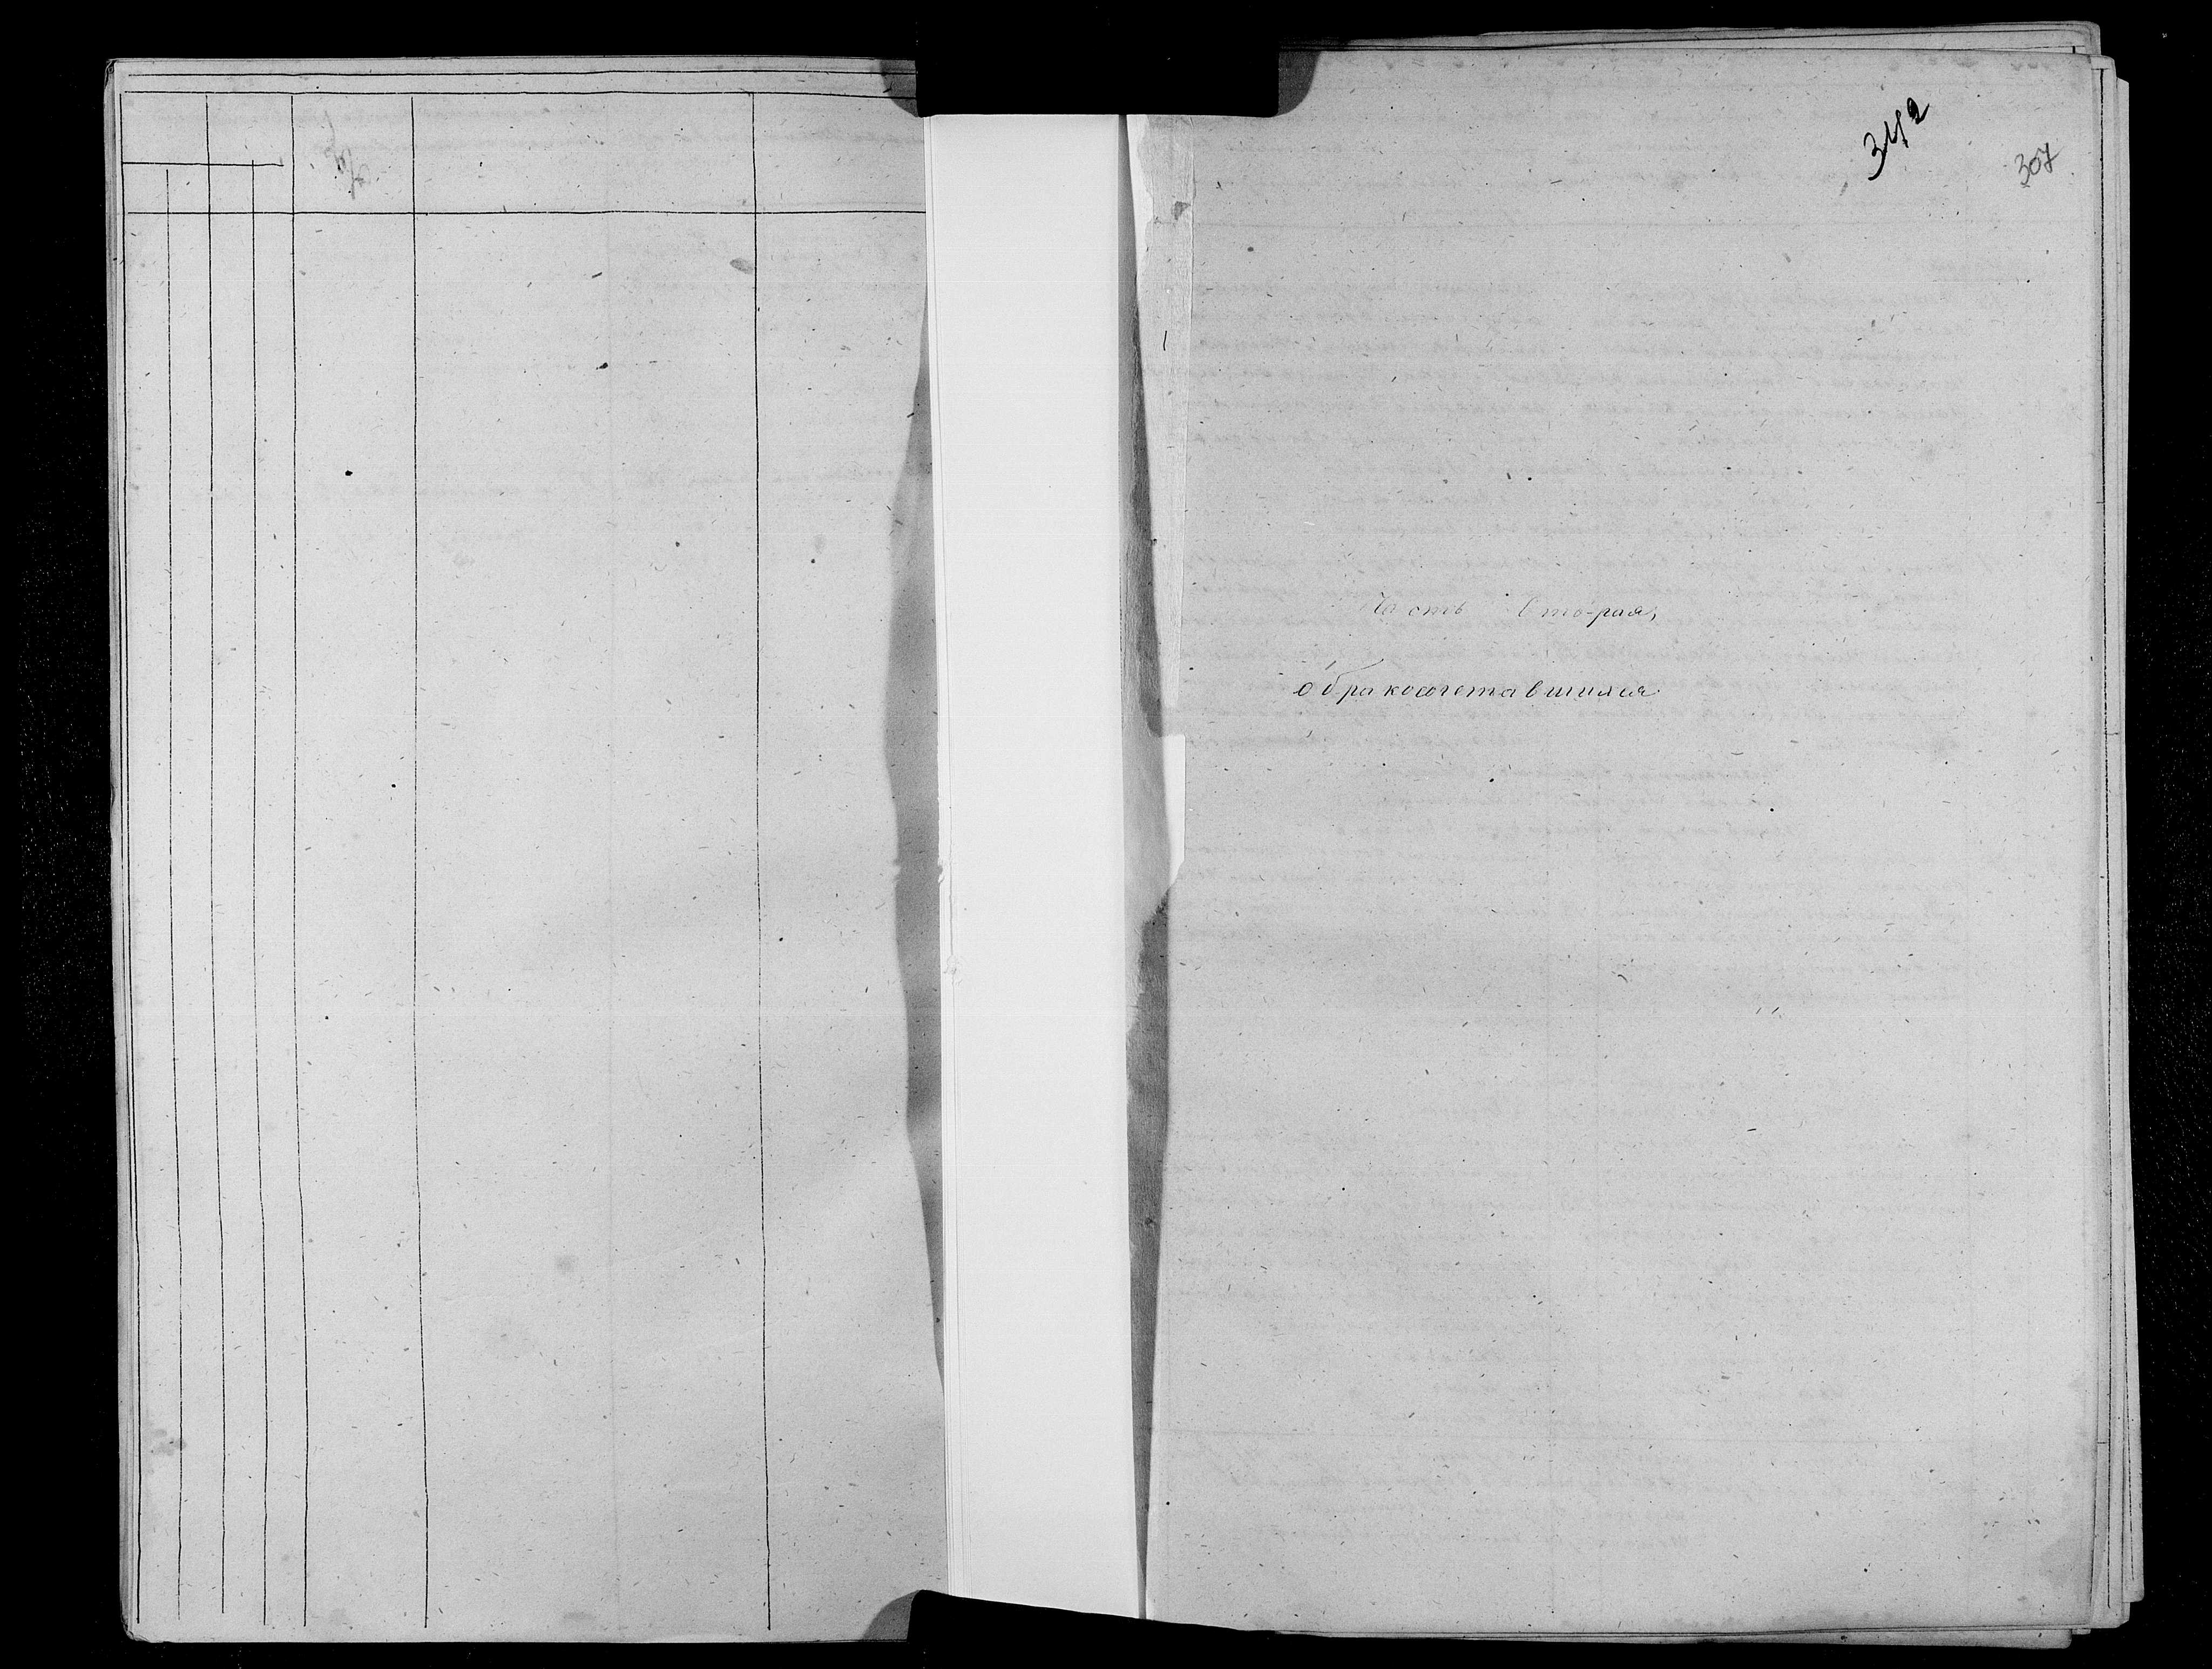 342
307
Часть Вторая,
о бракосочетавшихся